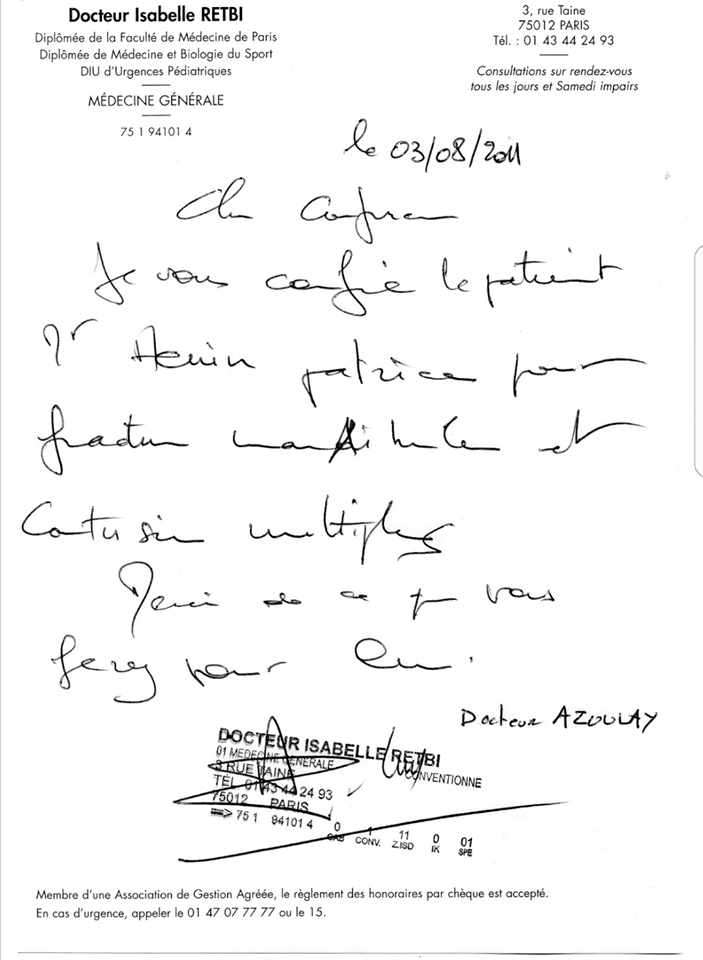 Docteur Isabelle RETBI
Diplômée de la Faculté de Médecine de Paris
Diplômée de Médecine et Biologie du Sport
DIU d'Urgences Pédiatriques
MÉDECINE GÉNÉRALE
75 1 94101 4
3, rue Taine
75012 PARIS
Tél. : 01 43 44 24 93
Consultations sur rendez-vous
tous les jours et Samedi impairs
le 03/08/2011
Cher Confrere
Je vous confie le patient
Mr Henin patrice pour
fracture mandibule et
Contusion multiples
Merci de ce que vous
ferez pour lui.
Docteur AZOULAY
DOCTEUR ISABELLE RETBI
01 MEDECINE GENERALE
CONVENTIONNE
3 RUE TAINE
TÉL. 01 43 44 24 93
75012 PARIS
==> 75 1 94101 4
0 1 11 0 01
CAB CONV. Z.ISD IK SPE
Membre d'une Association de Gestion Agréée, le règlement des honoraires par chèque est accepté.
En cas d'urgence, appeler le 01 47 07 77 77 ou le 15.